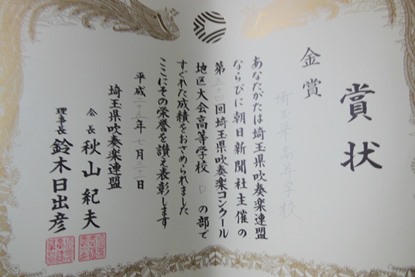 賞状
金賞
埼玉県 高等学校
あなたがたは埼玉県吹奏楽連盟
ならびに朝日新聞社主催の
第 回埼玉県吹奏楽コンクール
地区大会高等学校Dの部で
すぐれた成績をおさめられました
ここにその栄誉を讃え表彰します
平成二十 年七月 日
埼玉県吹奏楽連盟
会長 秋山紀夫
理事長 鈴木日出彦